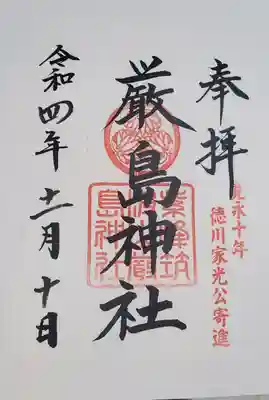 奉拝
寛永十年
徳川家光公寄進
厳島神社
令和四年十二月十日